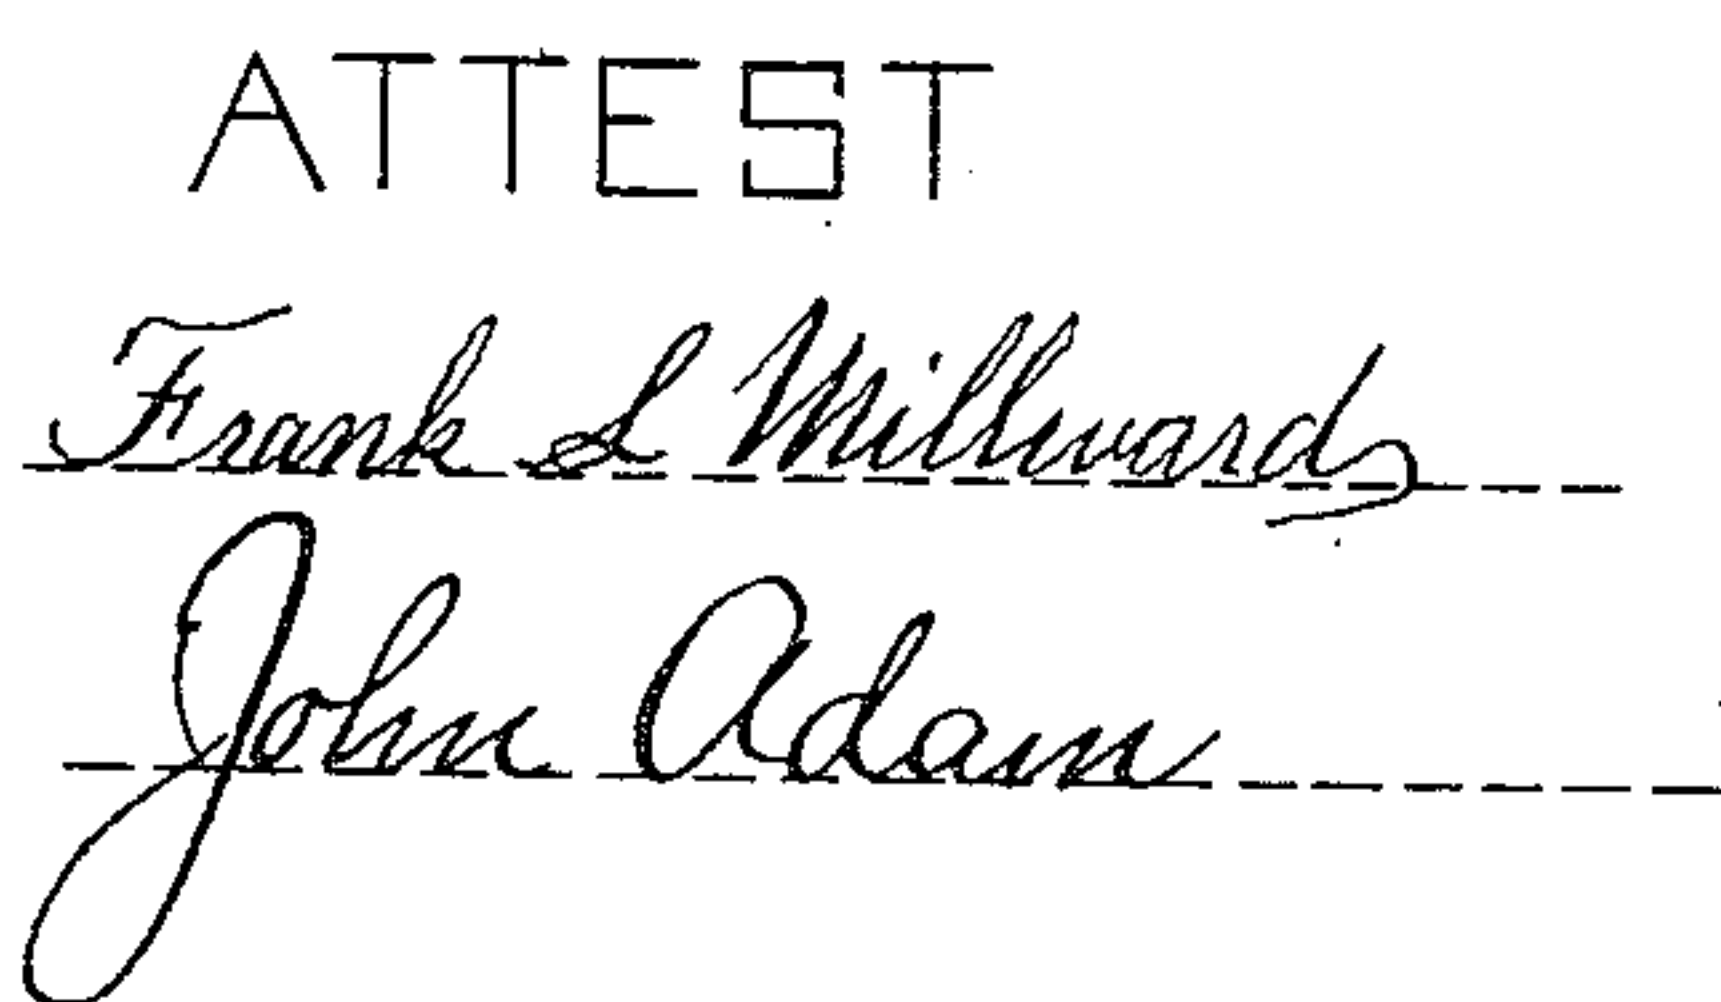 ATTEST
Frank S Millward
John Adam